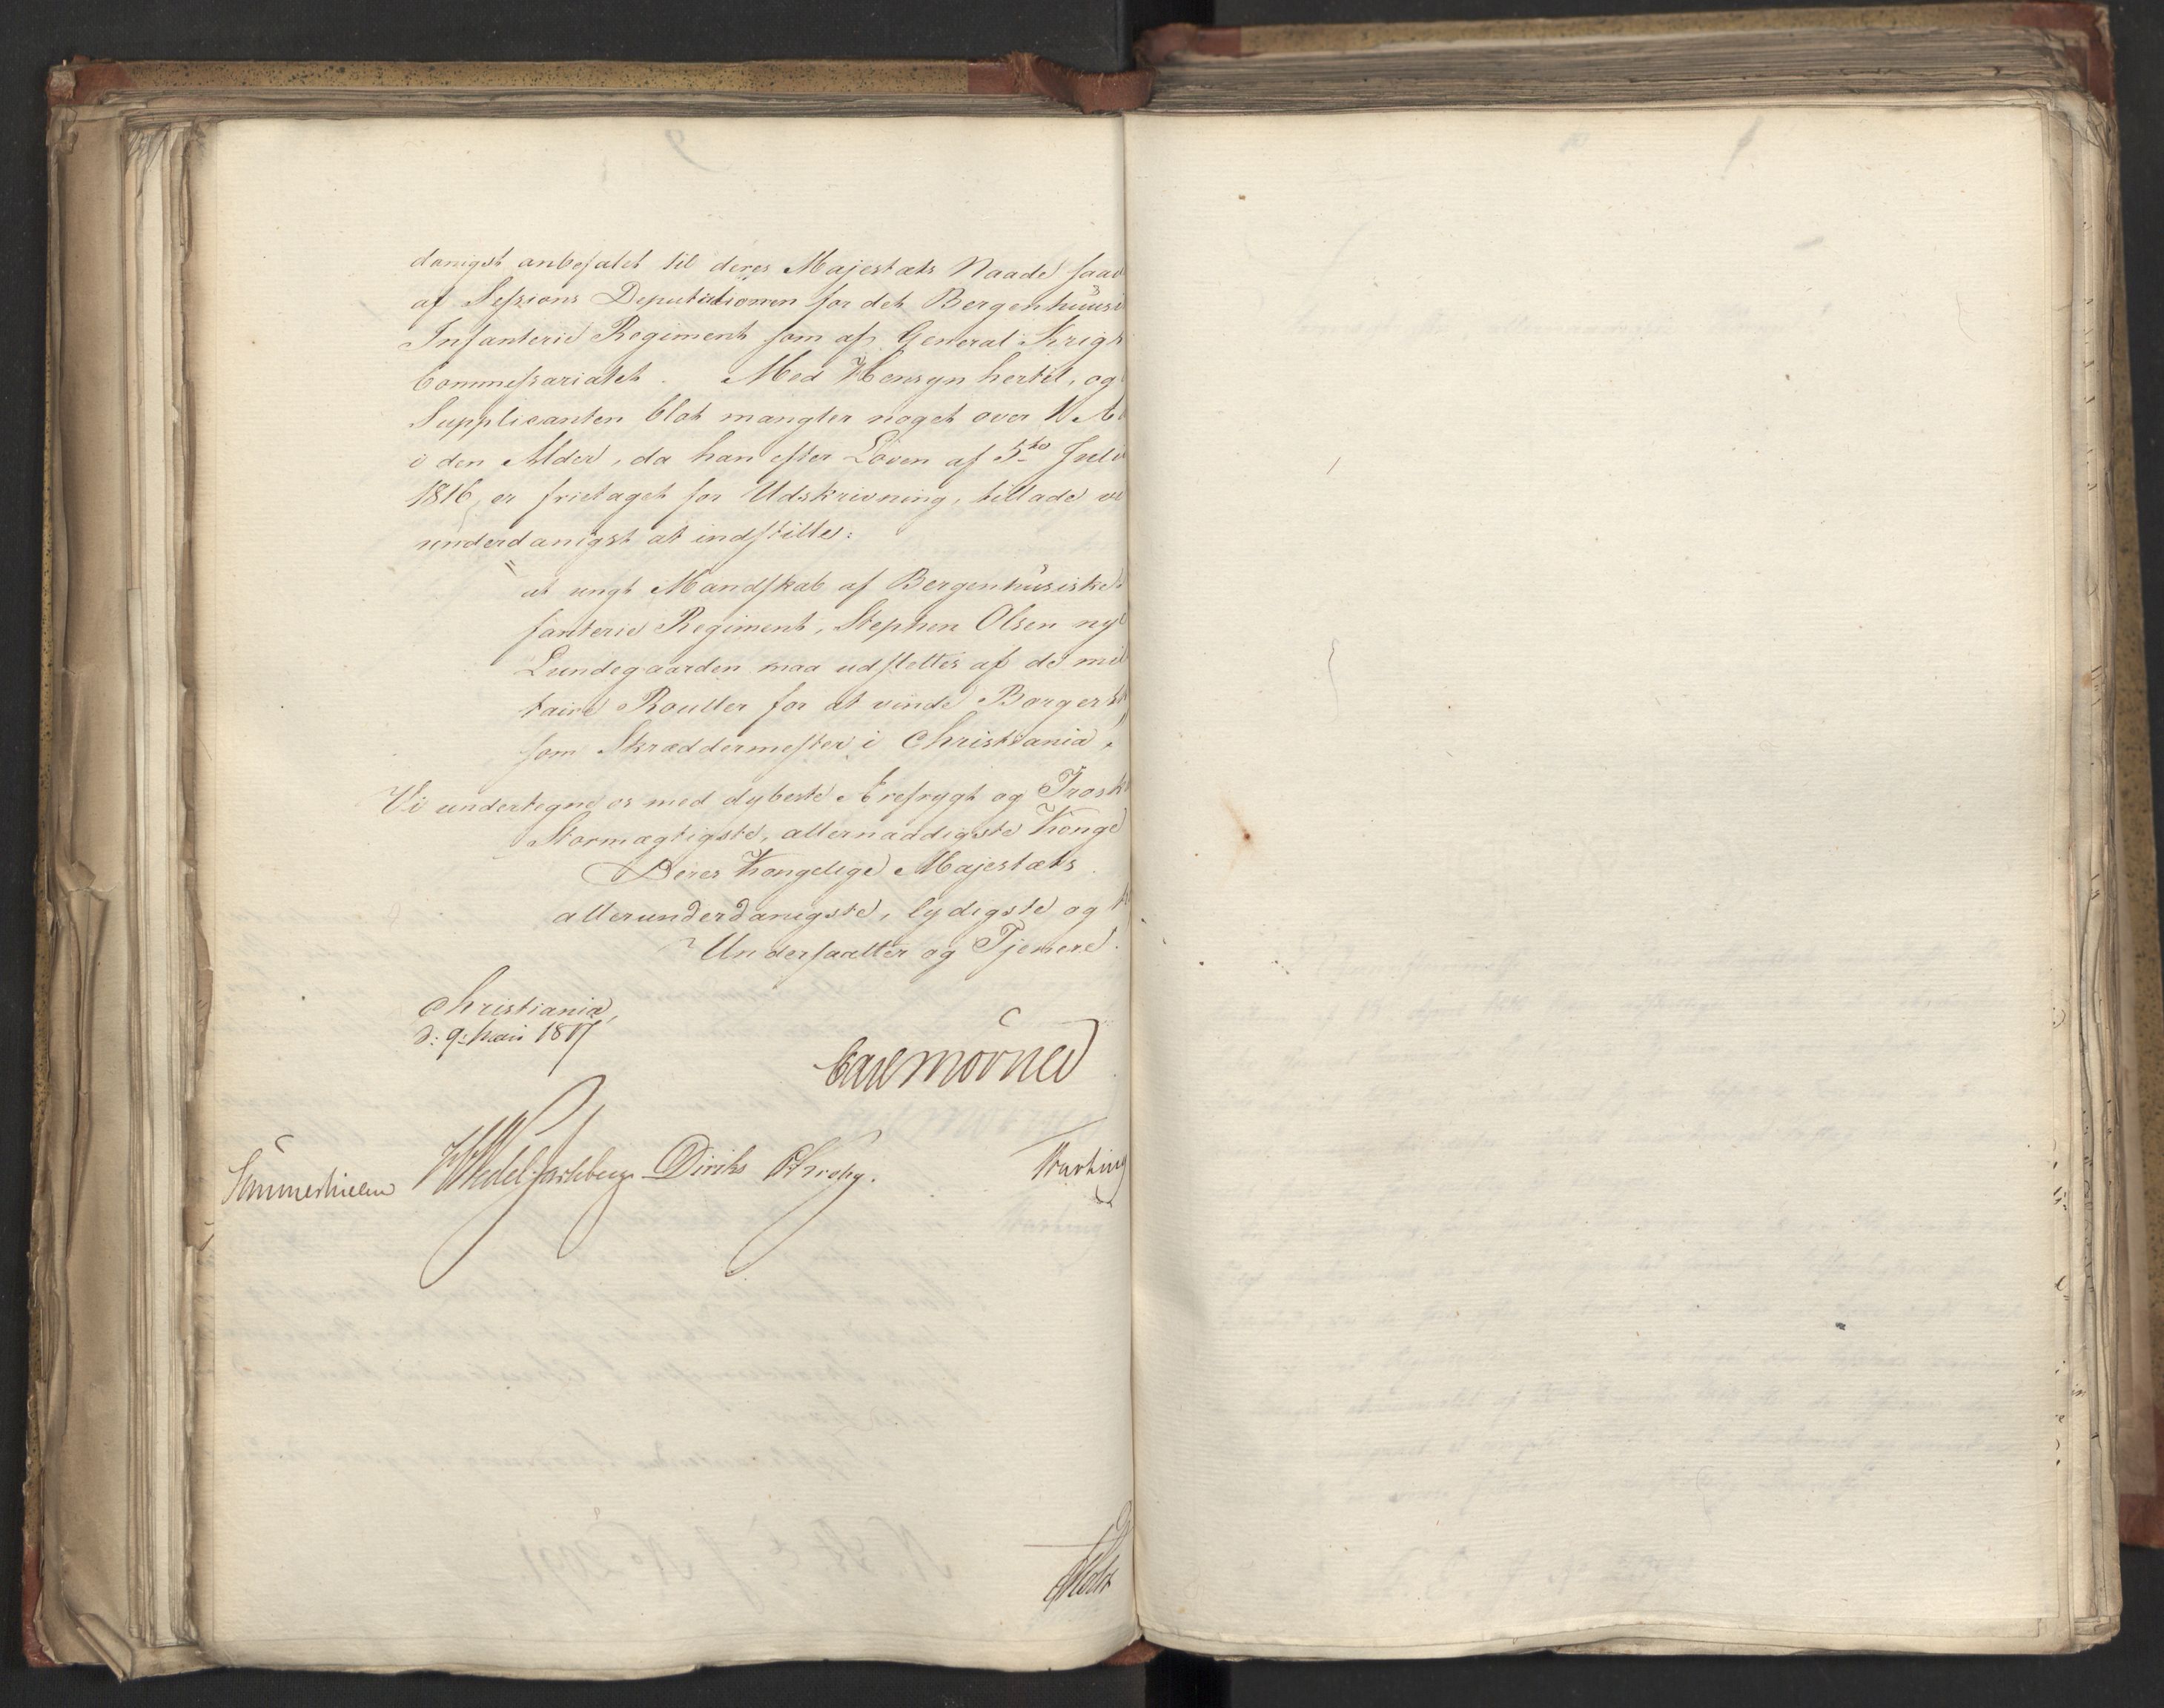 danigst anbefalet til deres Majestæts Naade saav
af Sessions Deputationen for det Bergenhuusi
Infanterie Regiment som af General Krigs
Commissariatet. Med Hensyn hertil, og
Supplicanten blot mangler noget over 1 A
i den Alder, da han efter Loven af 5te Juli
1816, er frietaget for Udskrivning, tillade vi
underdanigst at indstille:
at ungt Mandskab af Bergenhusiske
fanterie Regiment, Stephen Olsen nyl
Lundegaarden maa udslettes af de mili
taire Rouller for at vinde Borgersk
som Skræddermester i Christiania.
Vi undertegne os med dybeste Ærefrygt og Trosk
Stormægtigste, allernaadigste Konge
Deres Kongelige Majestæts
allerunderdanigste, lydigste og t
Undersaatter og Tjenere.
Christiania,
d: 9. Mai 1817
Carl Mörner
Sommerhielm Wedel Jarlsberg Diriks Krohg.
Motzfeldt
Holst